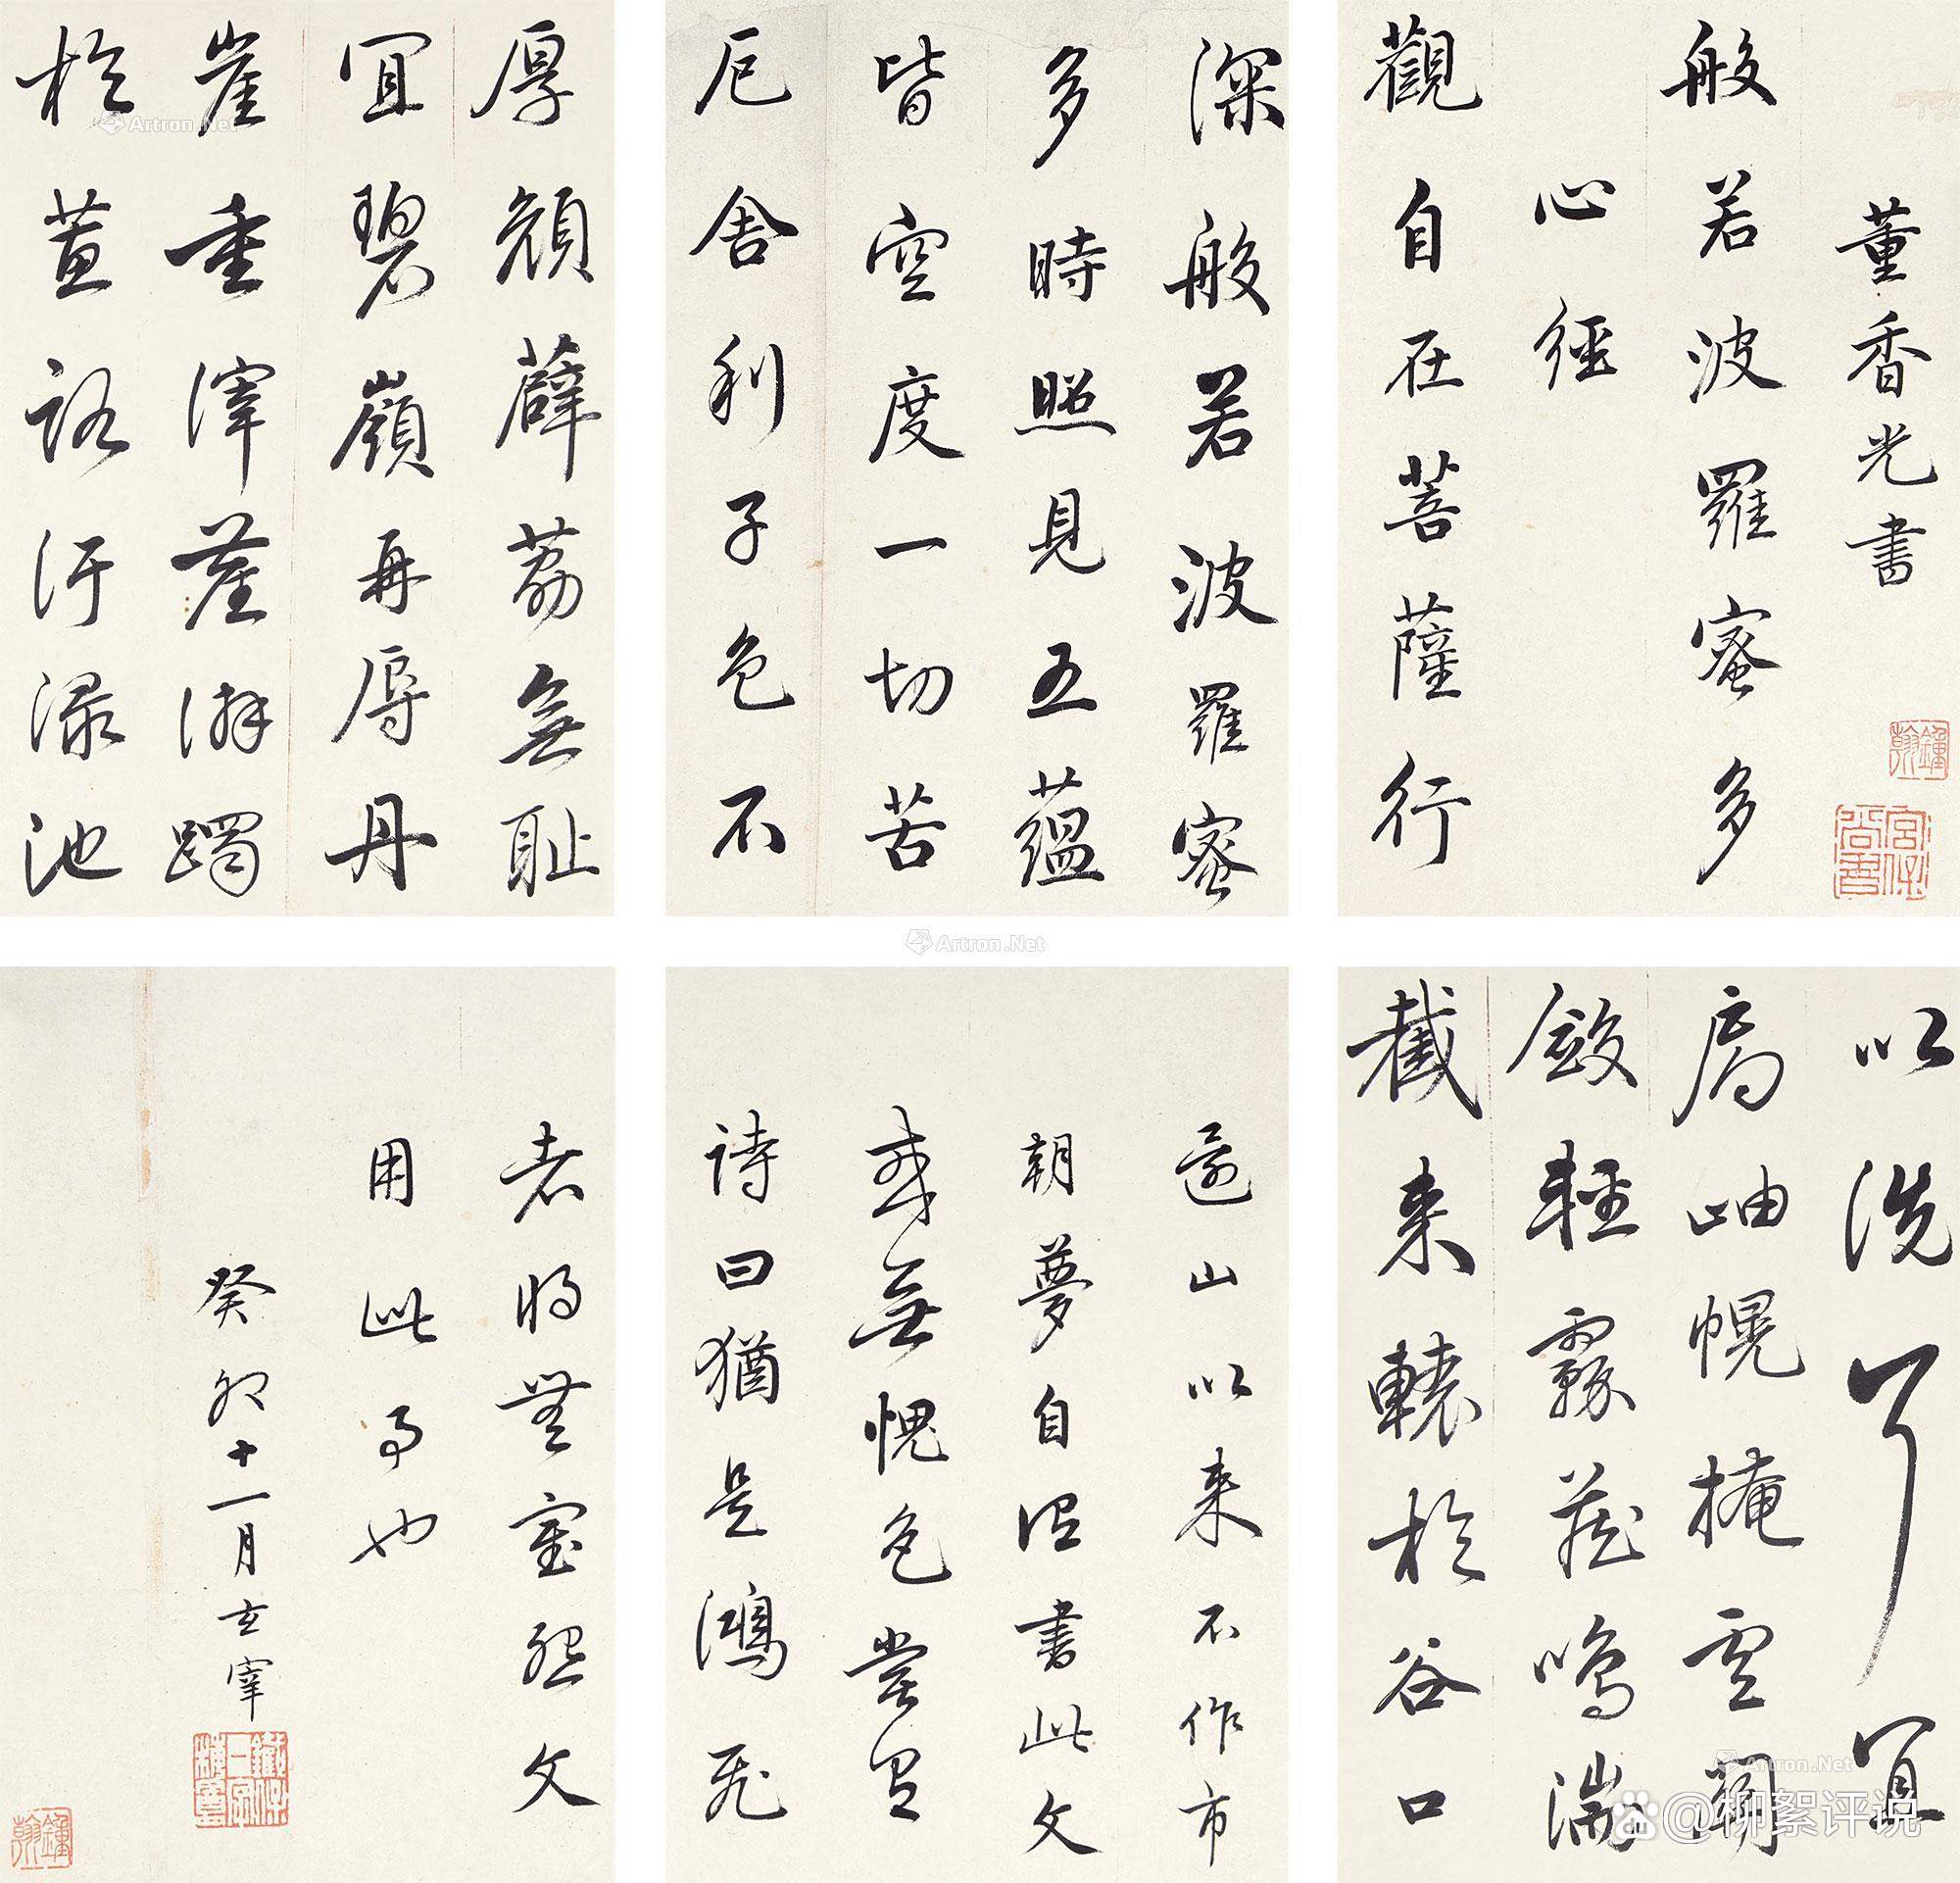 董香光書
般若波羅蜜多
心經
觀自在菩薩行
深般若波羅蜜
多時照見五蘊
皆空度一切苦
厄舍利子色不
厚顏薜荔無恥
宜碧嶺再辱丹
崖重滓塵游躅
於蕙路汙淥池
以洗耳宜
扃岫幌掩雲關
斂輕霧藏鳴湍
截来轅於谷口
還山以来不作市
朝夢自謂書此文
或無愧色嘗
詩曰猶是鴻飛
者將無怨文
用此事也
癸卯十一月玄宰
宮保尚書
Artron.Net
@柳絮评说